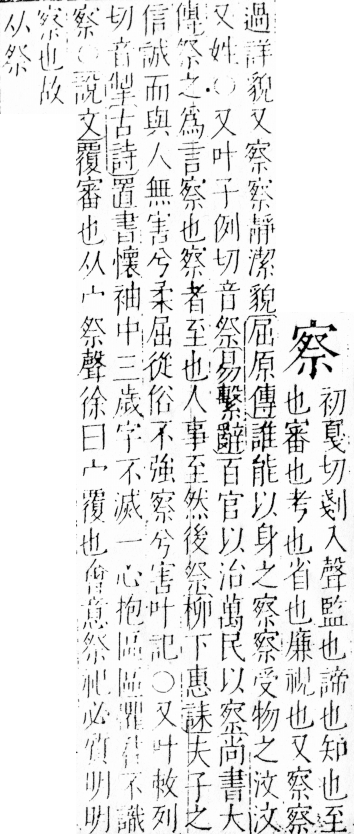 察
初戛切剗入聲監也諦也知也至
也審也考也省也廉視也又察察
過詳貌又察察靜潔貌屈原傳誰能以身之察察受物之汶汶
又姓○又叶子例切音祭易繫辭百官以治萬民以察尚書大
傳祭之為言察也察者至也人事至然後祭柳下惠誄夫子之
信誠而與人無害兮柔屈從俗不強察兮害叶記○又叶敕列
切音掣古詩置書懷袖中三歲字不滅一心抱區區懼君不識
察○說文覆審也从宀祭聲徐曰宀覆也會意祭祀必質明明
察也故
从祭